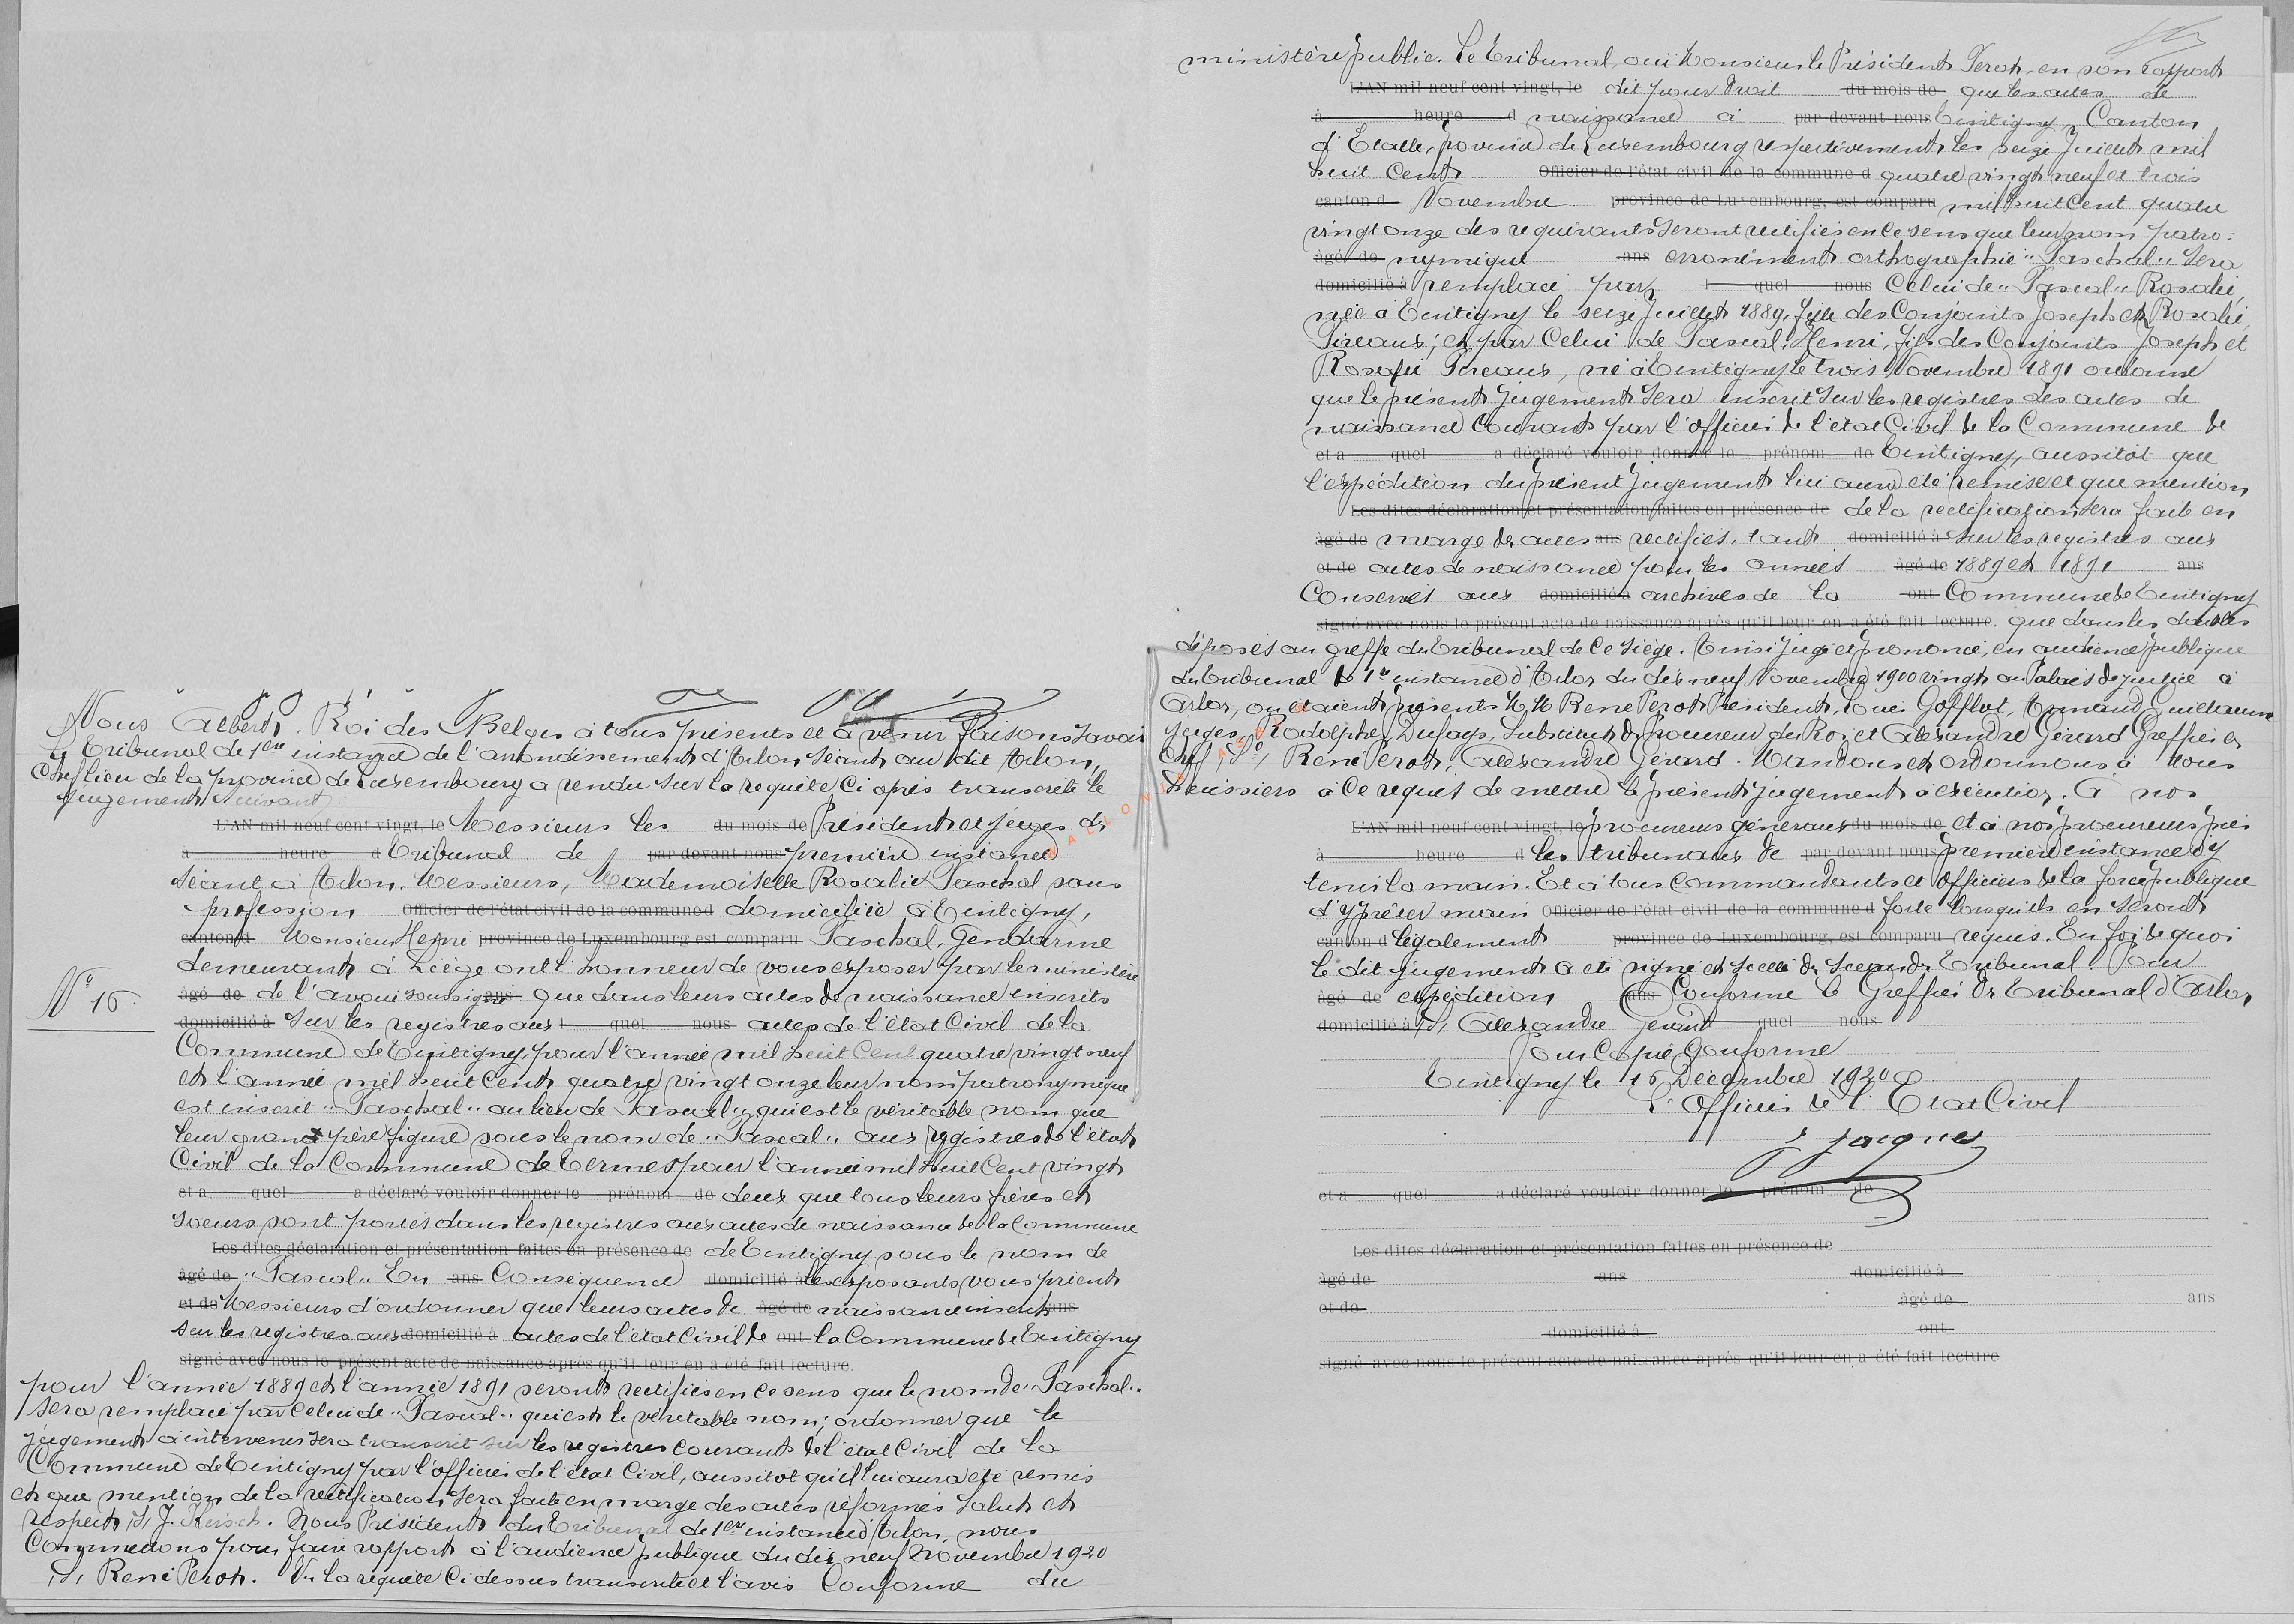 Nous Albert. Roi des Belges à tous présents et à venir faisons savoir
le Tribunal de 1ere instance de l'arrondissement d'Arlon séant au dit Arlon,
Chef lieu de la province de Luxembourg a rendu sur la requête ci après transcrite le
jugement suivant:
L'AN mil neuf cent vingt, le Messieurs les du mois de Président et juges du
à heure d Tribunal de par devant nous première instance
séant à Arlon. Messieurs, Mademoiselle Rosalie Paschal sans
profession Officier de l'état civil de la commune d domiciliée à Tintigny,
canton d Monsieur Henri province de Luxembourg est comparu Paschal, Gendarme
demeurant à Liège ont l'honneur de vous exposer par le ministère
N° 16. âgé de de l'avoué soussigné ans que dans leurs actes de naissance inscrits
domicilié à sur les registres aux l quel nous actes de l'état Civil de la
Commune de Tintigny, pour l'année mil huit Cent quatre vingt neuf
et l'année mil huit Cent quatre vingt onze leur nom patronymique
est inscrit "Paschal" au lieu de Pascal" qui est le véritable nom que
leur grand père figure sous le nom de "Pascal" aux registres de l'état
Civil de la Commune de Termes pour l'année mil huit Cent vingt
et a quel a déclaré vouloir donner le prénom de deux que tous leurs frères et
soeurs sont portés dans les registres aux actes de naissance de la Commune
Les dites déclaration et présentation faites en présence de de Tintigny sous le nom de
âgé de "Pascal" En ans Conséquence domicilié à les exposants vous prient
et de Messieurs d'ordonner que leurs actes de âgé de naissance inscrits ans
sur les registres aux domicilié à actes de l'état Civil de ont la Commune de Tintigny
signé avec nous le présent acte de naissance après qu'il leur en a été fait lecture.
pour l'année 1889 et l'année 1891 seront rectifiés en ce sens que le nom de "Paschal"
sera remplacé par celui de "Pascal" qui est le véritable nom; ordonner que le
jugement à intervenir sera transcrit sur les registres courants de l'état Civil de la
Commune de Tintigny par l'officier de l'état Civil, aussitôt qu'il lui aura été remis
et que mention de la rectification sera faite en marge des actes réformés Salut et
respect, (s) J. Kersch. Nous Président du Tribunal de 1ere instance d'Arlon, nous
Commettons pour faire rapport à l'audience publique du dix neuf Novembre 1920
(s) René Perot. Vu la requête Ci dessus transcrite et l'avis Conforme du
ministère public. Le Tribunal, ouï Monsieur le Président Perot, en son rapport
L'AN mil neuf cent vingt, le dit pour Droit du mois de que les actes de
à heure d naissance à par devant nous Tintigny, Canton
d'Etalle, province de Luxembourg respectivement les seize Juillet mil
huit Cent Officier de l'état civil de la commune d quatre vingt neuf et trois
canton d Novembre province de Luxembourg, est comparu mil huit Cent quatre
vingt onze des requérants seront rectifiés en ce sens que leur nom patro:
âgé de nymique ans erronément orthographié "Paschal" sera
domicilié à remplacé par l quel nous Celui de "Pascal" Rosalie,
née à Tintigny le seize Juillet 1889, fille des Conjoints Joseph et Rosalie
Pireaux; et par Celui de Pascal, Henri, fils des Conjoints Joseph et
Rosalie Pireaux, né à Tintigny le trois Novembre 1891 ordonne
que le présent jugement sera inscrit sur les registres des actes de
naissance Courants par l'officier de l'état Civil de la Commune de
et a quel a déclaré vouloir donner le prénom de Tintigny, aussitôt que
l'expédition du présent jugement lui aura été remise et que mention
Les dites déclaration et présentation faites en présence de de la rectification sera faite en
âgé de marge des actes ans rectifiés, tant domicilié à sur les registres aux
et de actes de naissance pour les années âgé de 1889 et 1891 ans
Conservés aux domicilié à archives de la ont Commune de Tintigny
signé avec nous le présent acte de naissance après qu'il leur en a été fait lecture. que dans les doubles
déposés au greffe du Tribunal de Ce siège. Ainsi jugé et prononcé, en audience publique
du Tribunal de 1re instance d'Arlon du dix neuf Novembre 1900 vingt au Palais de justice à
Arlon, où étaient présents M.M René Perot Président, Gofflot, Armand Guillaume
juges, Rodolphe Dufays, Substitut du Procureur du Roi et Alexandre Gérard Greffier en
Chef, (s), René Perot, Alexandre Gérard. Mandons et ordonnons à tous
huissiers à Ce requis de mettre le présent jugement à exécution. A nos
L'AN mil neuf cent vingt, le procureurs généraux du mois de et à nos procureurs près
à heure d les tribunaux de par devant nous première instance d'y
tenir la main. Et à tous commandants et officiers de la force publique
d'y prêter main Officier de l'état civil de la commune d forte lorsqu'ils en seront
canton d légalement province de Luxembourg, est comparu requis. En foi de quoi
le dit jugement a été signé et scellé du sceau du Tribunal. Pour
âgé de expédition ans Conforme le Greffier du Tribunal d'Arlon
domicilié à (s) Alexandre Gérard quel nous
Pour Copie Conforme
Tintigny le 16 Décembre 1920
L'Officier de l'Etat Civil
J Jacques
et a quel a déclaré vouloir donner le prénom de
Les dites déclaration et présentation faites en présence de
âgé de ans domicilié à
et de âgé de ans
domicilié à ont
signé avec nous le présent acte de naissance après qu'il leur en a été fait lecture